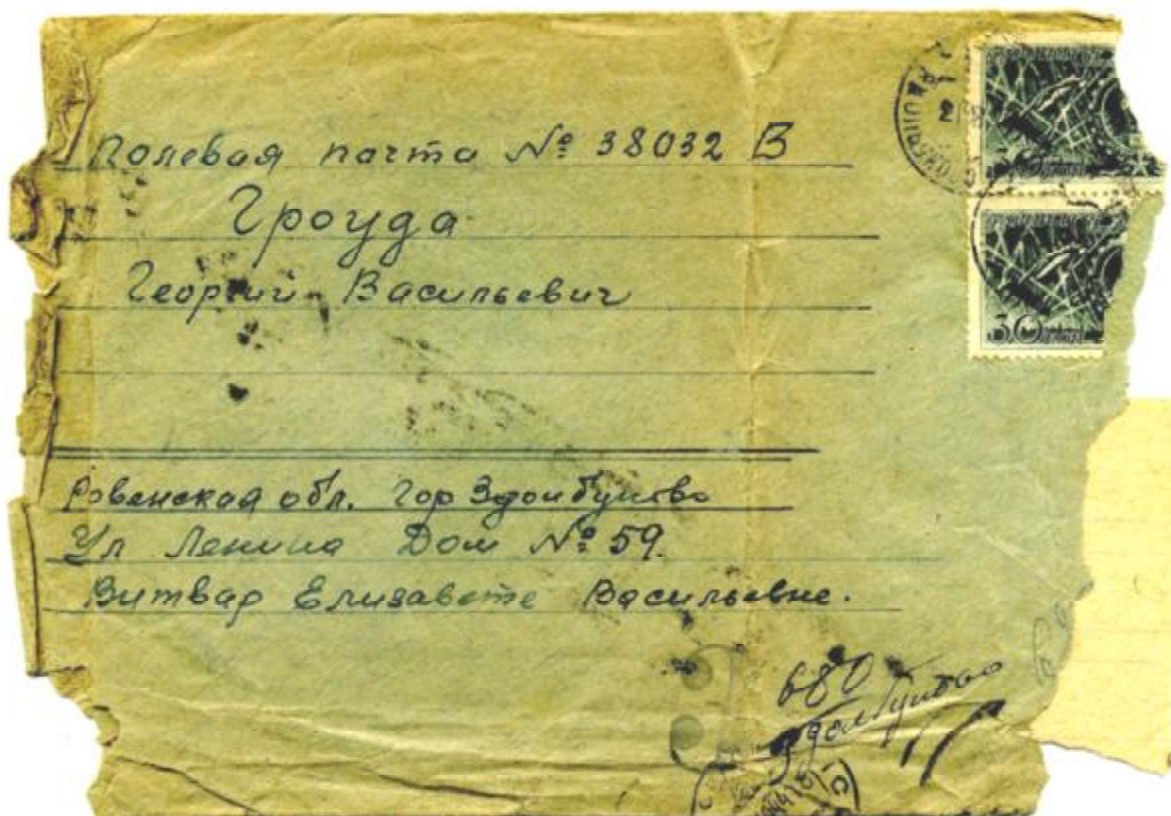 Полевая почта № 38032 В
Гроуда
Георгий Васильевич
30
Ровенская обл. гор Здолбуново
Ул Ленина Дом № 59.
Витвар Елизавете Васильевне.
680